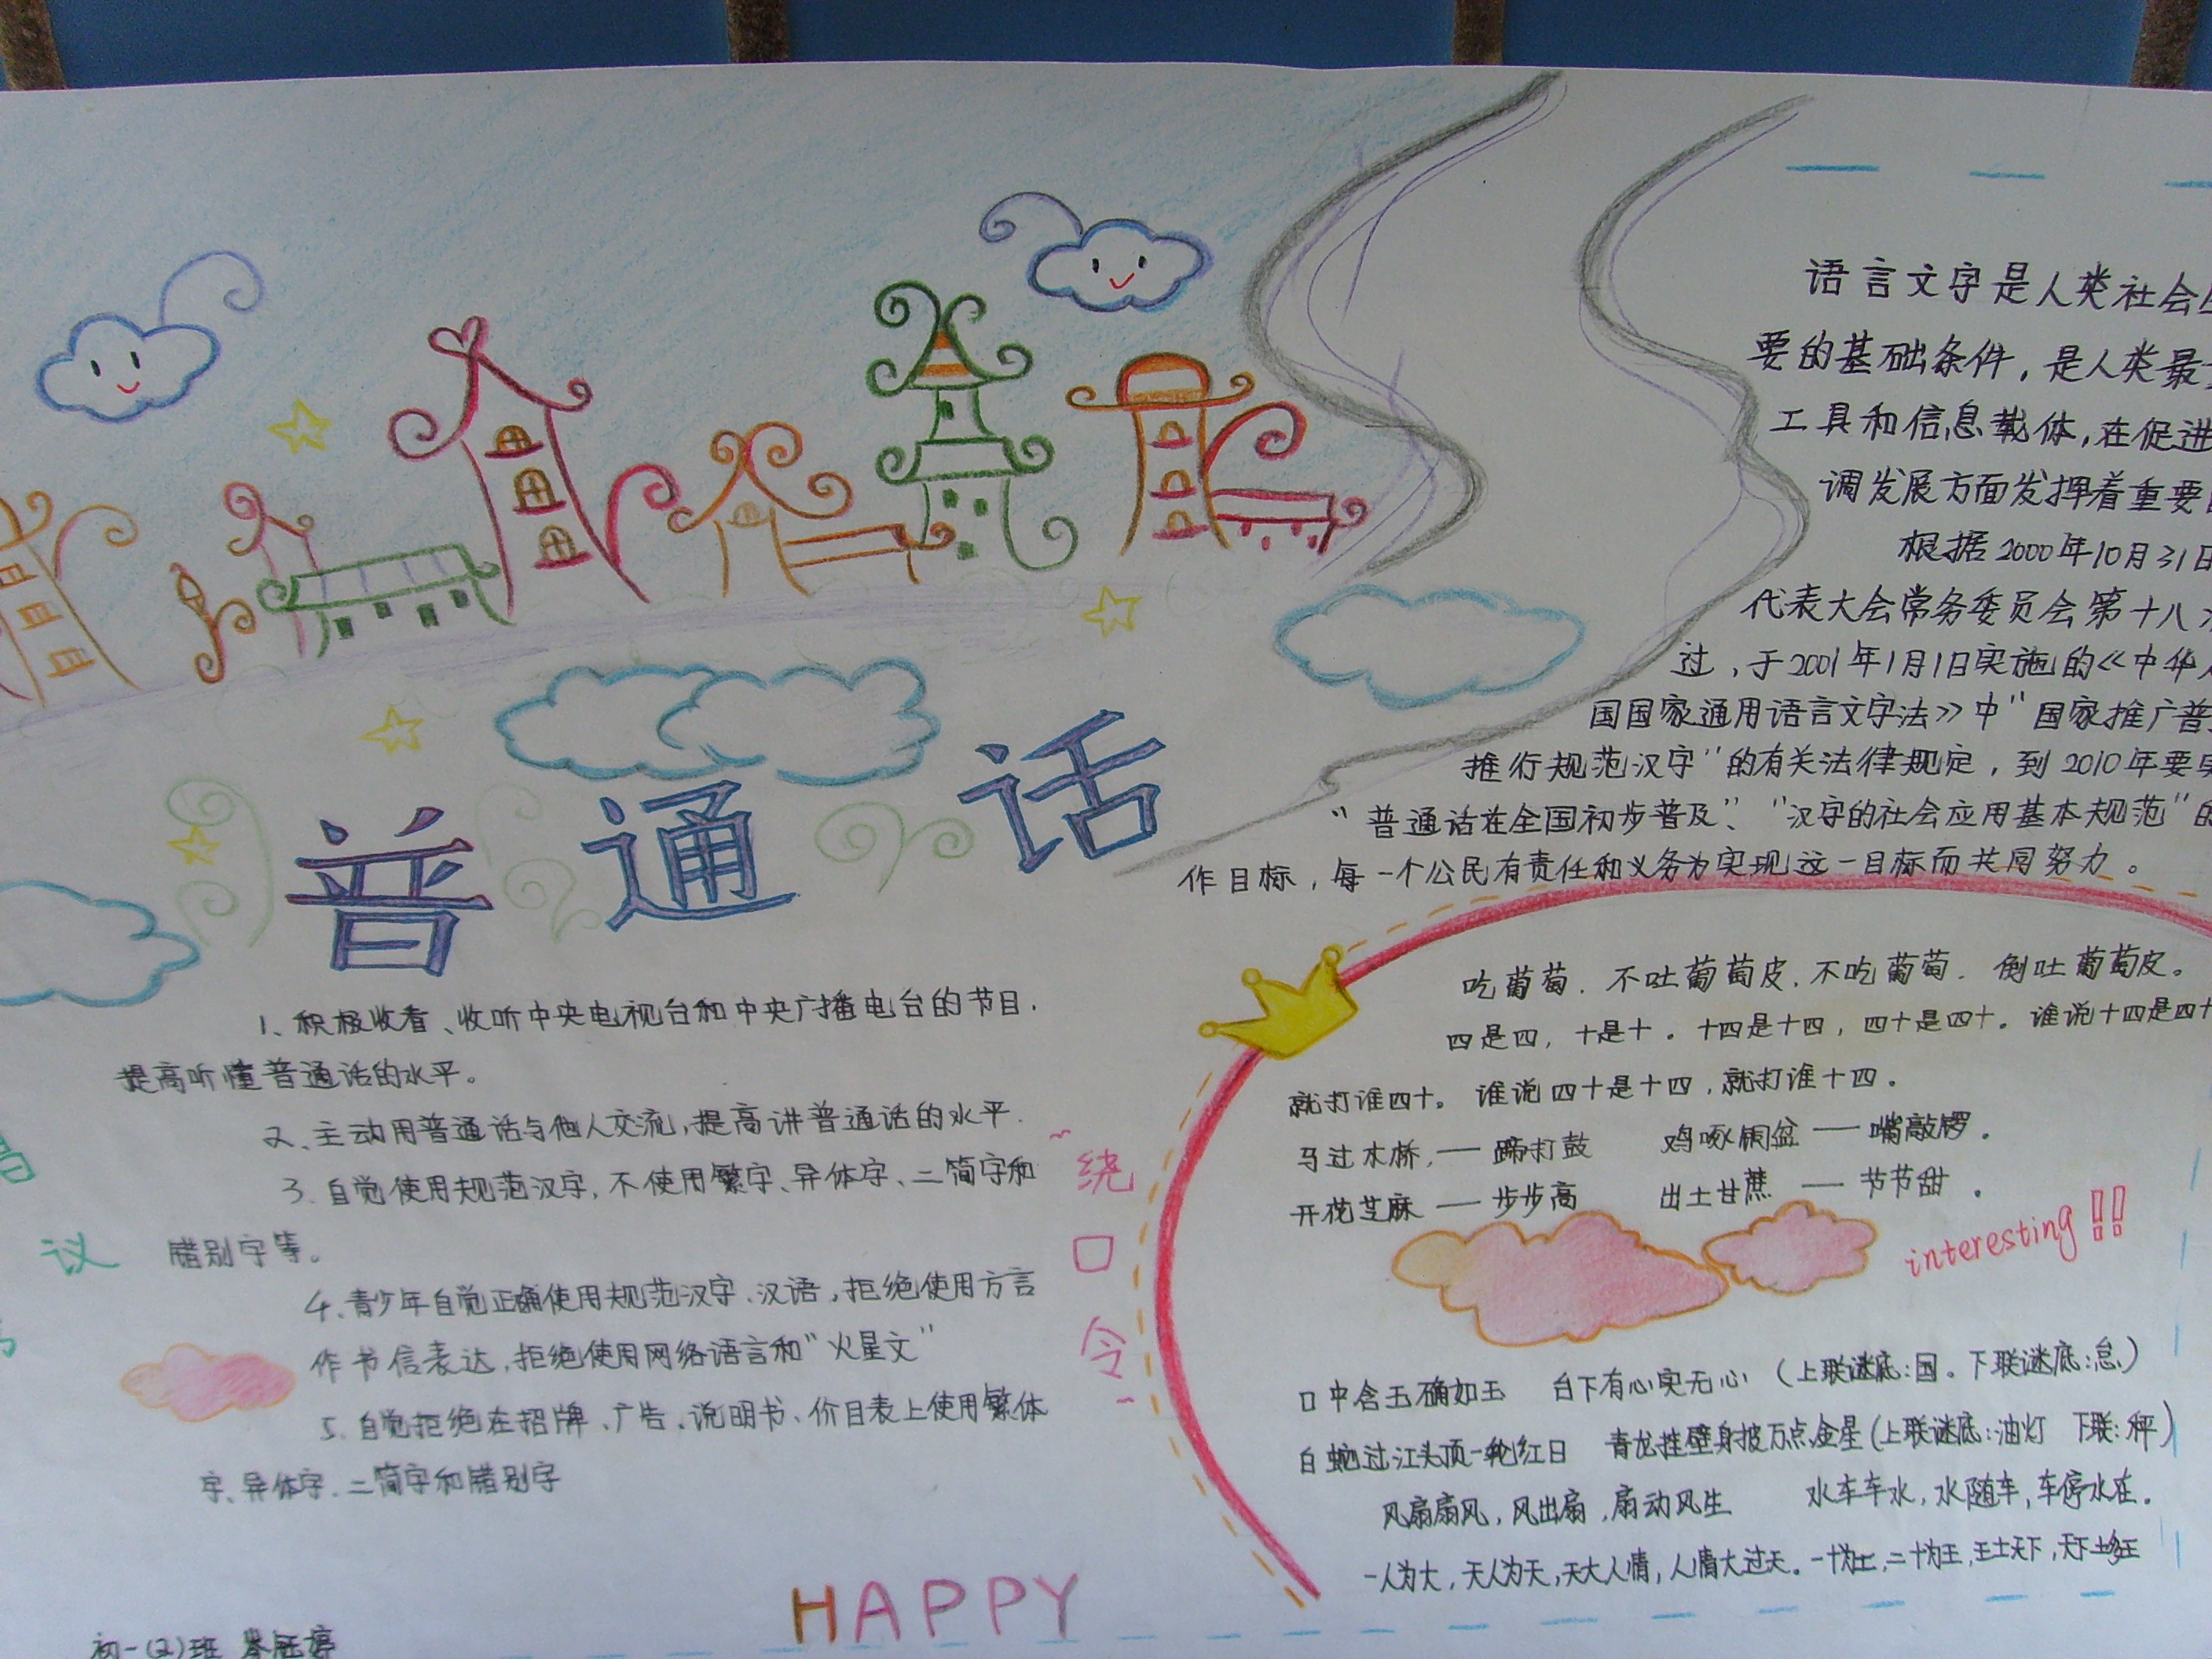 普通话
语言文字是人类社会
要的基础条件，是人类最
工具和信息载体，在促进
调发展方面发挥着重要
根据2000年10月31日
代表大会常务委员会第十八
过，于2001年1月1日实施的《中华
国国家通用语言文字法》中"国家推广普
推行规范汉字"的有关法律规定，到2010年要
"普通话在全国初步普及"、"汉字的社会应用基本规范"的
作目标，每一个公民有责任和义务为实现这一目标而共同努力。
1、积极收看、收听中央电视台和中央广播电台的节目，
提高听懂普通话的水平。
2、主动用普通话与他人交流，提高讲普通话的水平.
3、自觉使用规范汉字，不使用繁字、异体字、二简字和
错别字等。
4、青少年自觉正确使用规范汉字、汉语，拒绝使用方言
作书信表达，拒绝使用网络语言和"火星文"
5、自觉拒绝在招牌、广告、说明书、价目表上使用繁体
字、异体字、二简字和错别字
议
绕口令
吃葡萄．不吐葡萄皮．不吃葡萄．倒吐葡萄皮。
四是四，十是十。十四是十四，四十是四十。谁说十四是四十
就打谁四十。谁说四十是十四，就打谁十四。
马过木桥，——蹄打鼓 鸡啄铜盆——嘴敲锣．
开花芝麻——步步高 出土甘蔗——节节甜．
interesting!!
口中含玉确如玉 台下有心实无心（上联谜底:国。下联谜底:怠）
白蛇过江头顶一轮红日 青龙挂壁身披万点金星(上联谜底:油灯 下联:秤)
风扇扇风，风出扇，扇动风生 水车车水，水随车，车停水在．
一人为大，天人为天，天大人情，人情大过天。一十为土，二十为王，王土天下，天下土
HAPPY
初一(2)班